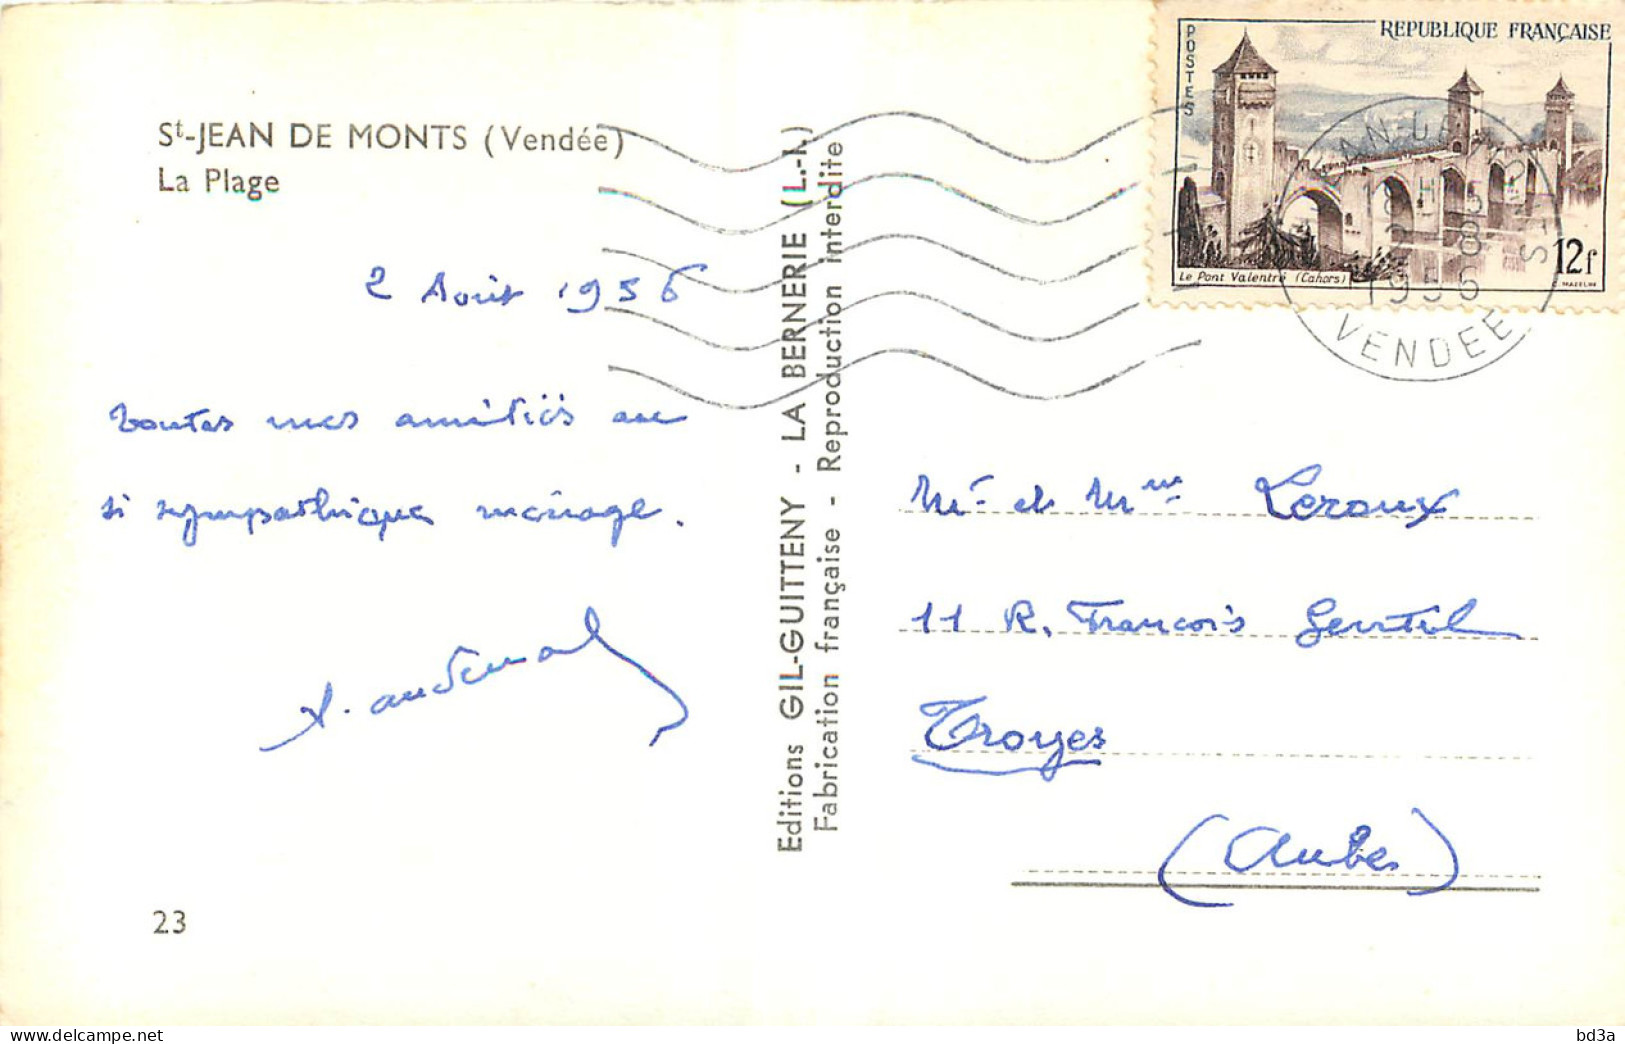 St-JEAN DE MONTS (Vendée)
La Plage
2 Août 1956
Toutes mes amitiés au
si sympathique ménage.
23
Editions GIL-GUITTENY - LA BERNERIE (L.-I.)
Fabrication française - Reproduction interdite
POSTES
REPUBLIQUE FRANÇAISE
Le Pont Valentré (Cahors)
12f
1956
VENDEE
Mr et Mme Leroux
11 R. François Gentil
Troyes
(Aube)
bd3a